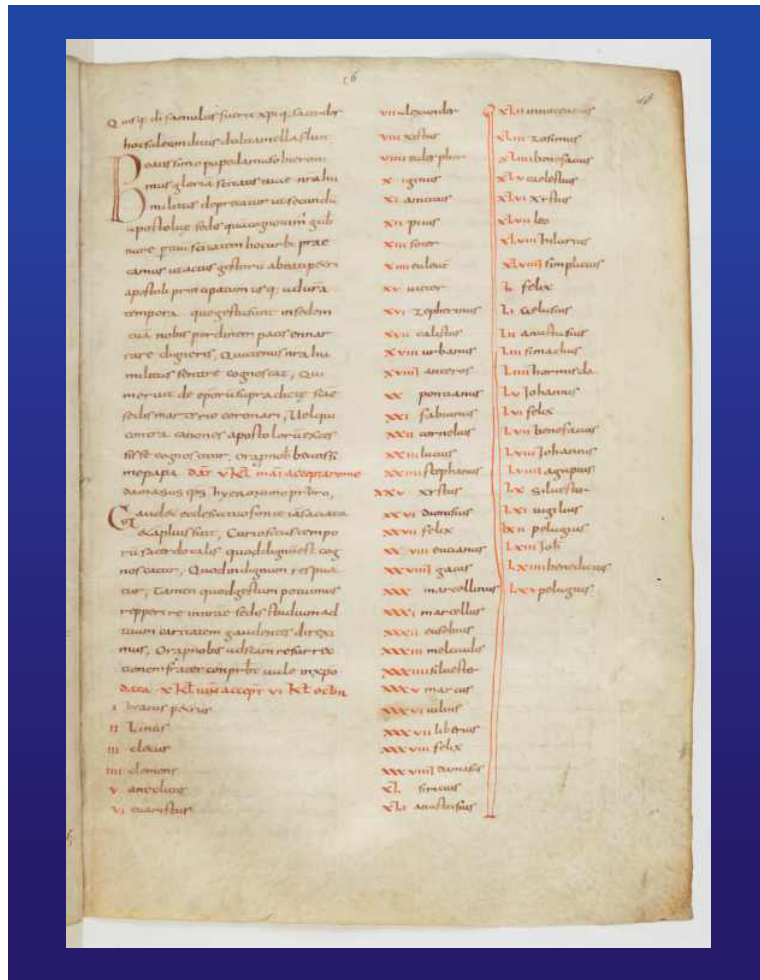 16
Quisq di famulus fuerit xpiq sacerdos
hoc sale conditus dulcia mella fluit
Beatissimo papae damaso hieroni
mus gloria sctitatis tuae nra hu
militas deprecatur ut secundu
apostolice sedis qua cognovim gub
nare p tuam scitatem hoc curbi prae
camur ut actus gestoru a beati petri
apostoli principatum usq ad vra
tempora que gesta sunt in sedem
tua nobis per dinem pacis ennar
rare digneris, Quatenus nra hu
militas sentire cognoscat, Qui
meruit de eporu supradicte scae
sedis martyrio coronari, Uel qui
contra canones apostoloru exces
sisse cognoscatur, ora p nob beatissi
me papa dat v kl mai accepta rome
damasus eps hyeronimo prbro,
Gaudet ecclesia tuo fonte iam saciata
&amplius sitit, Curiositas tempo
ru sacerdotalis quod dignu est cog
noscatur, Quod indignum respua
tur, Tamen quod gestum potuimus
repperire in nrae sedis studium ad
tuam caritatem gaudentes direxi
mus, Ora p nobis ad scam resurrec
tionem frater conprbr uale in xpo
data x kl iun accept vi kl octbr
i beatus petrus
ii Linus
iii cletus
iiii clemens
v anecletus
vi euaristus
vii alexander
viii xistus
viiii telesphor
x iginus
xi anicius
xii pius
xiii soter
xiiii euleut
xv victor
xvi zepherinus
xvii calistus
xviii urbanus
xviiii anteros
xx pontianus
xxi fabianus
xxii cornelius
xxiii lucius
xxiiii stephanus
xxv xystus
xxvi dionisius
xxvii felix
xxviii eucianus
xxviiii gaius
xxx marcellinus
xxxi marcellus
xxxii eusebius
xxxiii melciadis
xxxiiii silvester
xxxv marcus
xxxvi iulius
xxxvii liberius
xxxviii felix
xxxviiii damasus
xl siricius
xli anastasius
xlii innocentius
xliii zosimus
xliiii bonefacius
xlv caelestius
xlvi xystus
xlvii leo
xlviii hilarius
xlviiii simplicius
l felix
li gelasius
lii anastasius
liii simachus
liiii hormisda
lv Iohannis
lvi felix
lvii bonefacius
lviii Iohannis
lviiii agapius
lx silverius
lxi vigilius
lxii pelagius
lxiii Ioh
lxiiii benedictus
lxv pelagius